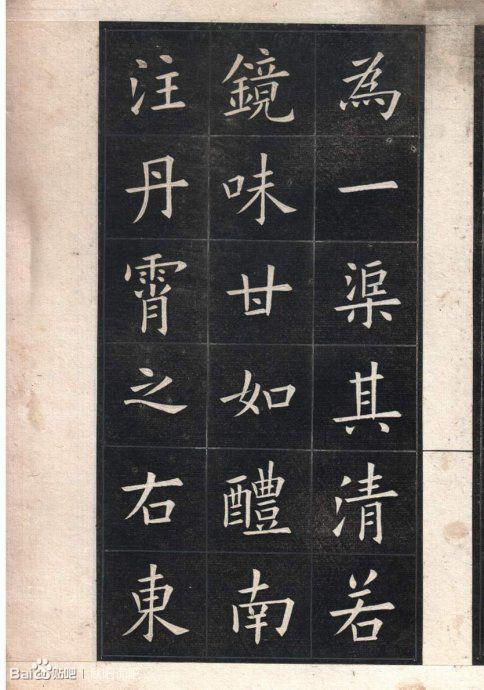 為一渠其清若
鏡味甘如醴南
注丹霄之右東
Bai 贴吧